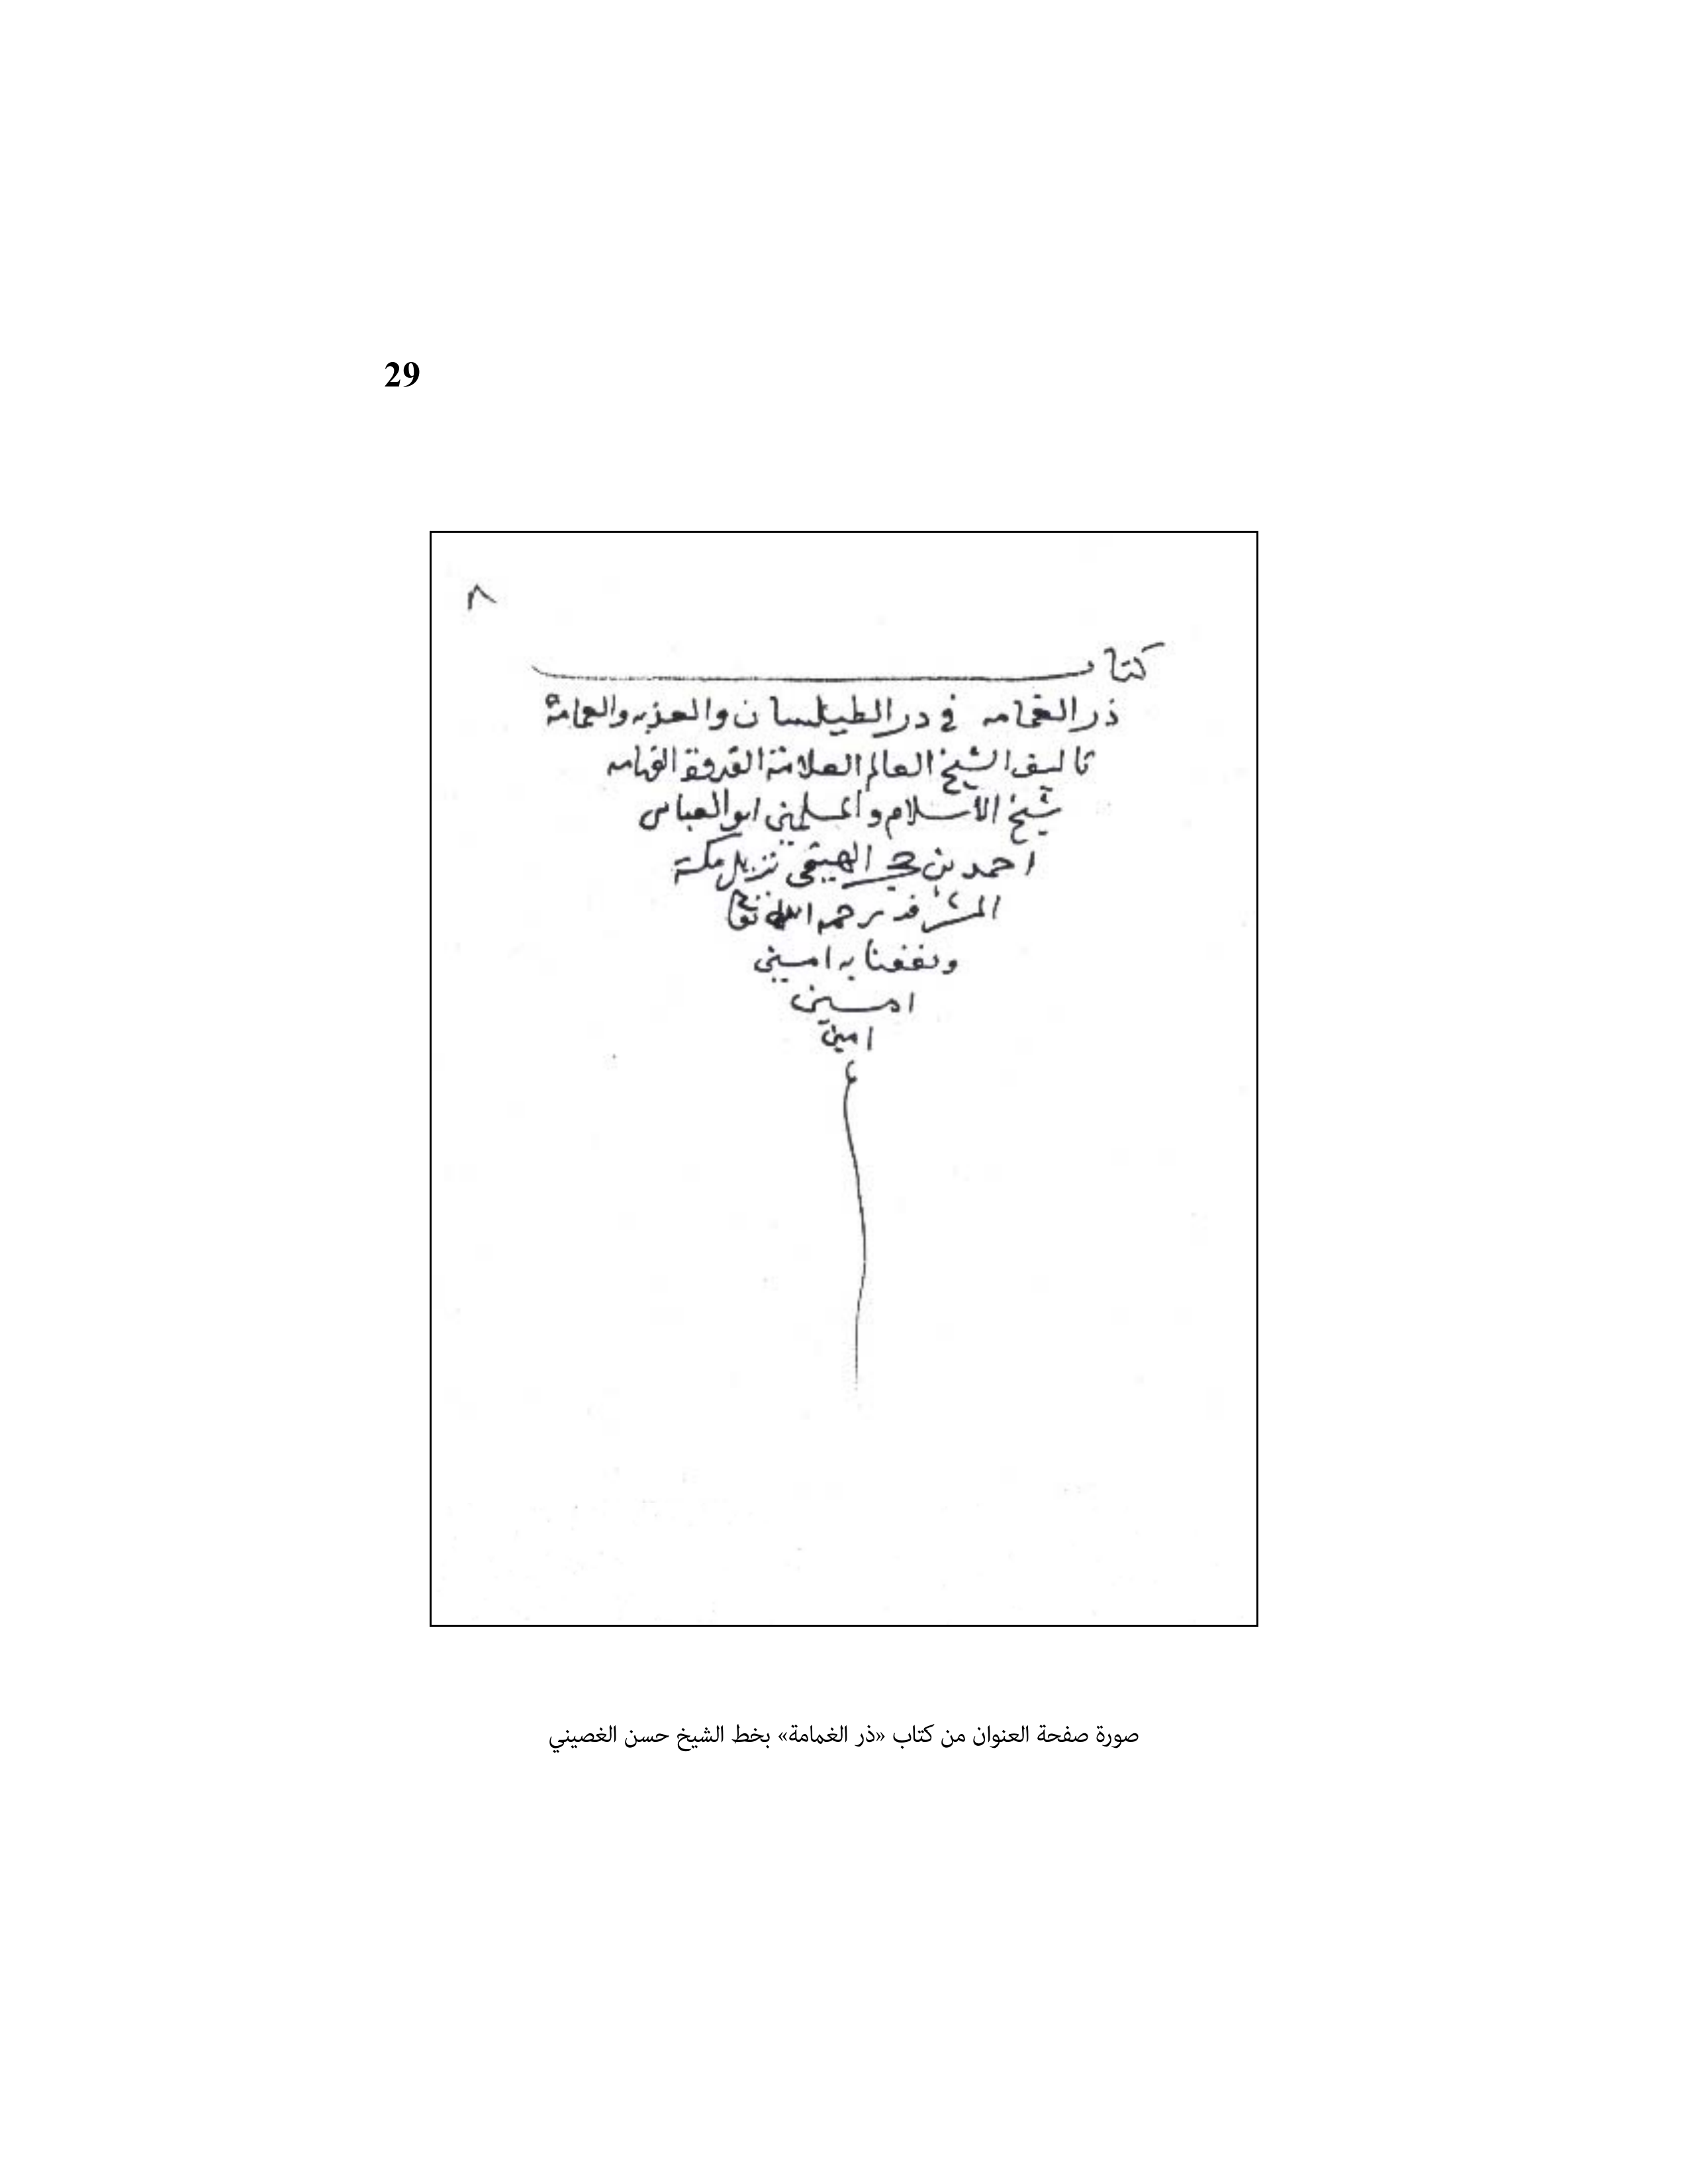 29
٨
كتاب
ذر الغمامه في در الطيلسان والعذبه والعمامة
تاليف الشيخ العالم العلامة القدوة الفهامه
شيخ الاسلام والمسلمين ابو العباس
احمد بن حجر الهيتمي نزيل مكة
المشرفة رحمه الله تعالى
ونفعنا به امين
امين
امين
صورة صفحة العنوان من كتاب «ذر الغمامة» بخط الشيخ حسن الغصيني